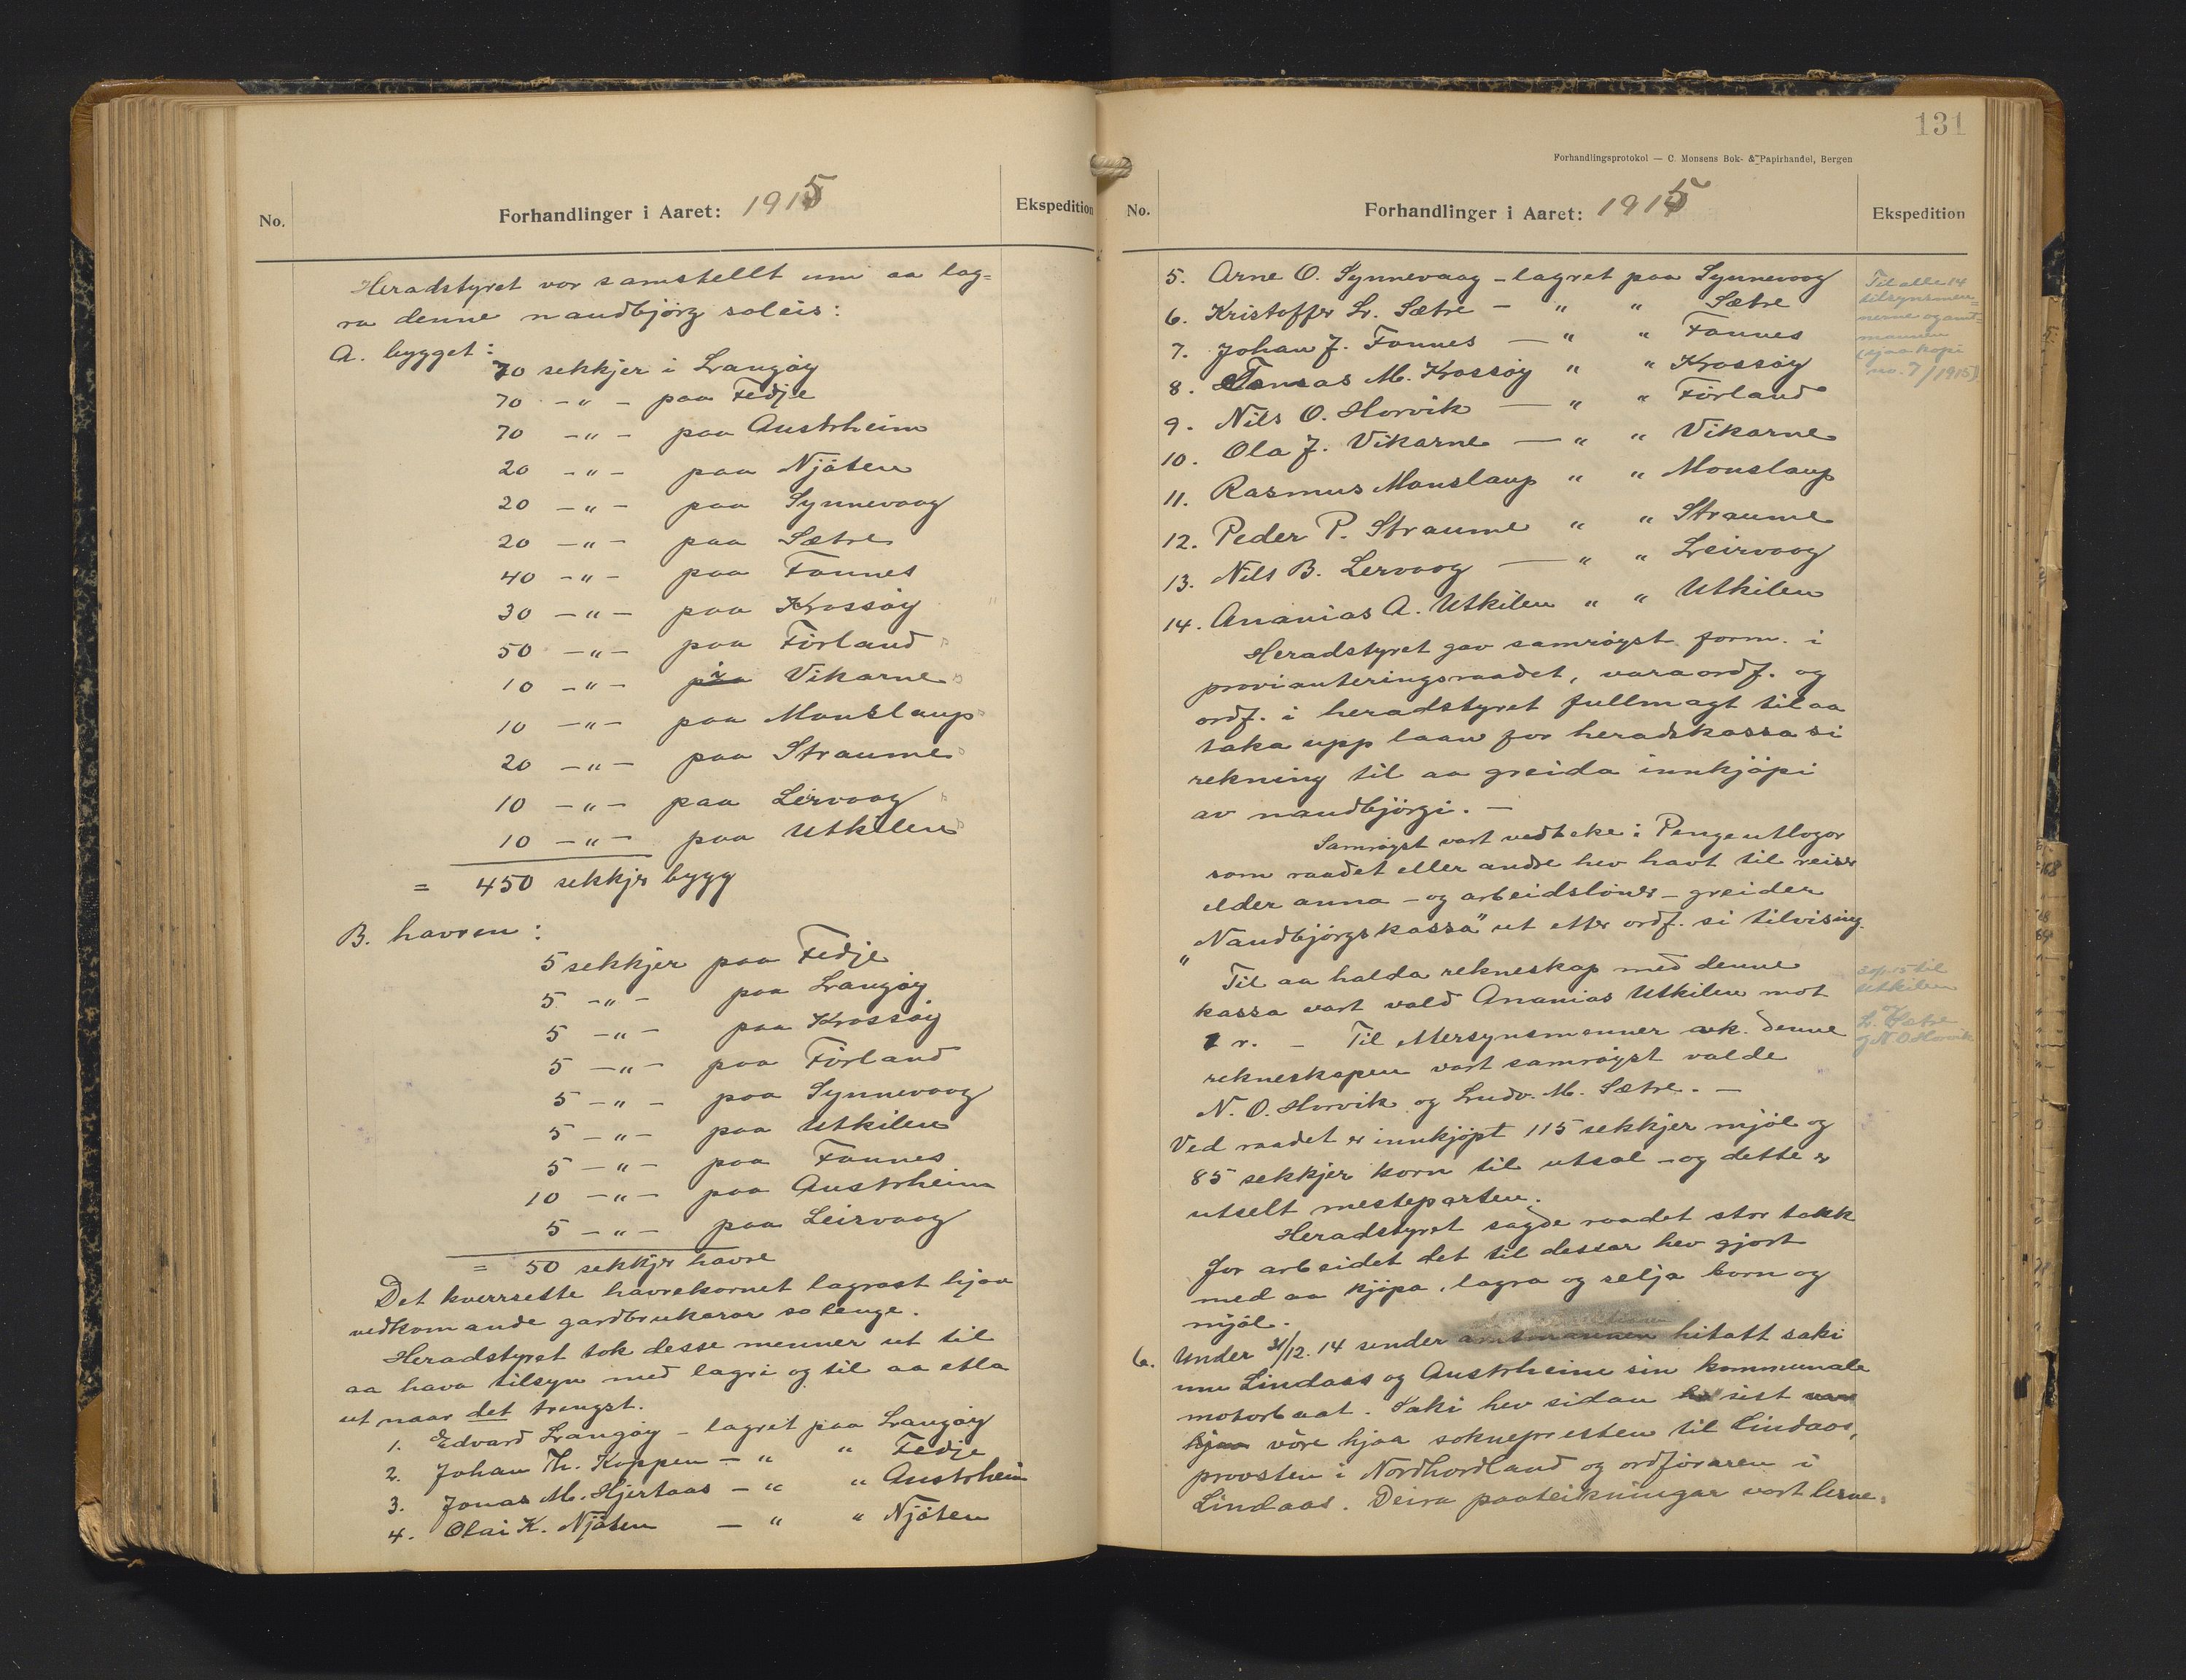 No.
Forhandlinger i Aaret: 1915
Ekspedition
Heradstyret var samstellt um aa lag=
ra denne naudbjörg soleis:
A. bygget:
70 sekkjer i Langöy
70 -"- paa Fedje
70 -"- paa Austrheim
20 -"- paa Njöten
20 -"- paa Synnevaag
20 -"- paa Sætre
40 -"- paa Fonnes
30 -"- paa Krossöy
50 -"- paa Förland
10 -"- i Vikarne
10 -"- paa Monslaup
20 -"- paa Straume
10 -"- paa Lervaag
10 -"- paa Utkilen
= 450 sekkjer bygg
B. havren:
5 sekkjer paa Fedje
5 -"- paa Langöy
5 -"- paa Krossöy
5 -"- paa Förland
5 -"- paa Synnevaag
5 -"- paa Utkilen
5 -"- paa Fonnes
10 -"- paa Austrheim
5 -"- paa Leirvaag
= 50 sekkjer havre
Det kverrsette havrekornet lagrast hjaa
vedkomande gardbrukarar so lenge.
Heradstyret tok desse menner ut til
aa hava tilsyn med lagri og til aa etla
ut naar det trengst.
1. Edvard Langöy - lagret paa Langöy
2. Johan Th. Koppen - " " Fedje
3. Jonas M. Hjertaas - " " Austrheim
4. Olai K. Njöten - " " Njöten
131
Forhandlingsprotokol — C. Monsens Bok- & Papirhandel, Bergen
No.
Forhandlinger i Aaret: 1915
Ekspedition
5. Arne O. Synnevaag - lagret paa Synnevaag
6. Kristoffer L. Sætre - " " Sætre
7. Johan J. Fonnes - " " Fonnes
8. Tomas M. Krossöy " " Krossöy
9. Nils O. Horvik - " " Förland
10. Ola J. Vikarne - " " Vikarne
11. Rasmus Monslaup " " Monslaup
12. Peder P. Straume " " Straume
13. Nils B. Lervaag - " " Leirvaag
14. Ananias A. Utkilen " " Utkilen
Til alle 14
tilsynsmen=
nerne og amt=
mannen
(sjaa kopi
no. 7/1915)
Heradstyret gav samröyst form. i
provianteringsraadet, varaordf. og
ordf. i heradstyret fullmagt til aa
taka upp laan for heradskassa si
rekning til aa greida innkjöpi
av naudbjörgi. -
Samröyst vart vedteke: Pengeutlogor
som raadet eller andre hev havt til reiser
elder anna - og arbeidslöner - greider
"Naudbjörgskassa" ut etter ordf. si tilvising.
Til aa halda rekneskap med denne
kassa vart vald Ananias Utkilen mot
1 r. - Til ettersynsmenner av denne
rekneskapen vart samröyst valde
N. O. Horvik og Ludv. M. Sætre. -
15 til
Utkilen
og
L. Sætre
og N O Horvik
Ved raadet er innkjöpt 115 sekkjer mjöl og
85 sekkjer korn til utsal - og dette er
utselt mesteparten.
Heradstyret sagde raadet stor takk
for arbeidet det til dessar hev gjort
med aa kjöpa, lagra og selja korn og
mjöl.
6. Under 31/12. 14 sender amtmannen hitatt saki
um Lindaas og Austrheim sin kommunale
motorbaat. Saki hev sidan sist
vöre hjaa soknepresten til Lindaas,
proosten i Nordhordland og ordföraren i
Lindaas. Deira paateikningar vart lesne.